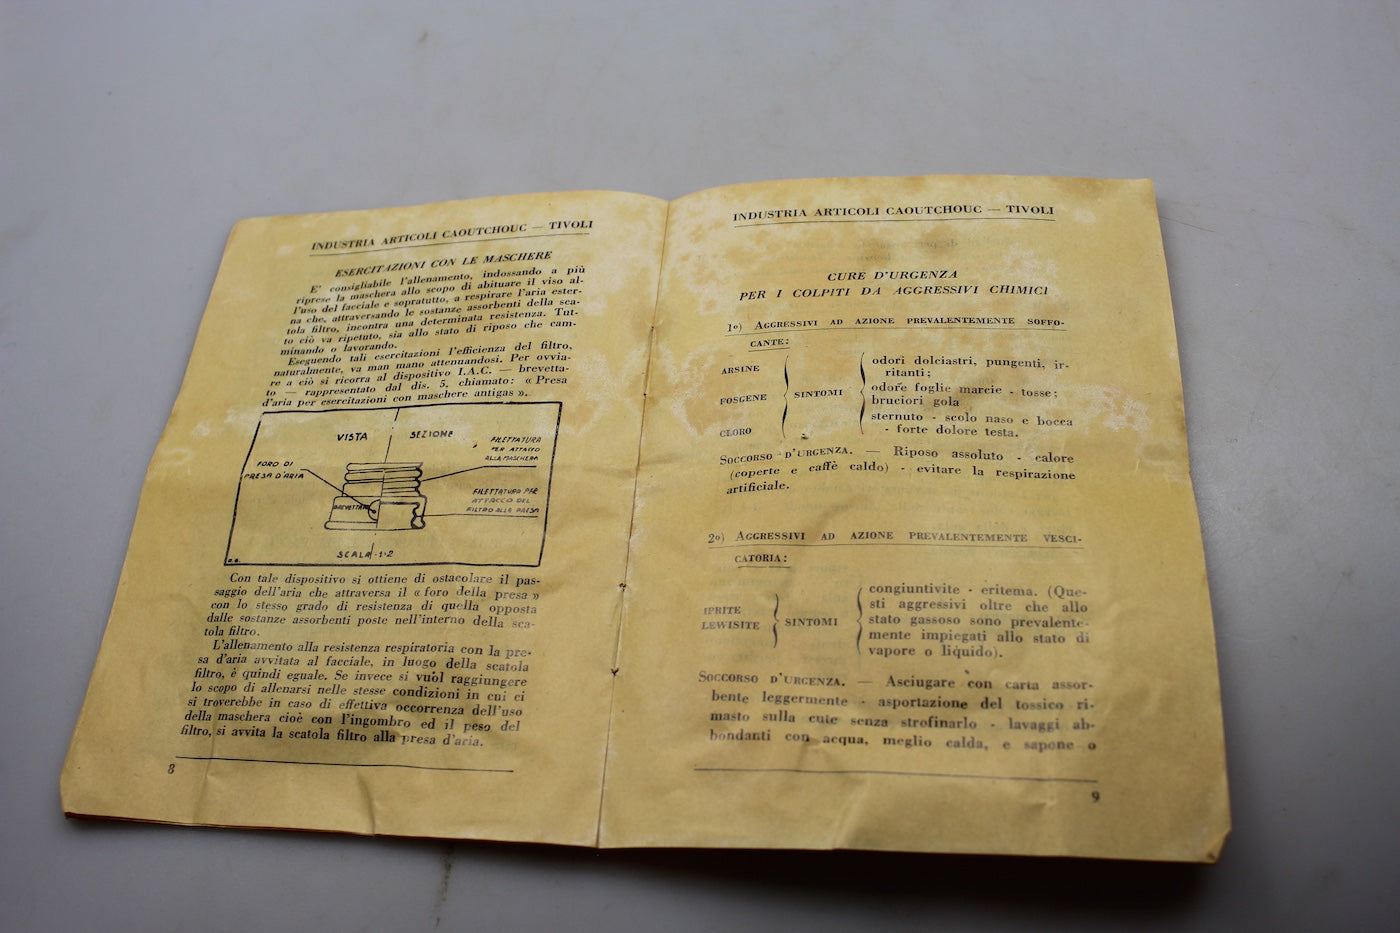 INDUSTRIA ARTICOLI CAOUTCHOUC — TIVOLI
ESERCITAZIONI CON LE MASCHERE
E' consigliabile l'allenamento, indossando a più
riprese la maschera allo scopo di abituare il viso al-
l'uso del facciale e sopratutto, a respirare l'aria ester-
na che, attraversando le sostanze assorbenti della sca-
tola filtro, incontra una determinata resistenza. Tut-
to ciò va ripetuto, sia allo stato di riposo che cam-
minando o lavorando.
Eseguendo tali esercitazioni l'efficienza del filtro,
naturalmente, va man mano attenuandosi. Per ovvia-
re a ciò si ricorra al dispositivo I.A.C. — brevetta-
to — rappresentato dal dis. 5, chiamato: « Presa
d'aria per esercitazioni con maschere antigas ».
VISTA
SEZIONE
FILETTATURA
PER ATTACCO
ALLA MASCHERA
FORO DI
PRESA D'ARIA
FILETTATURA PER
ATTACCO DEL
FILTRO ALLA PRESA
BREVETTATA
SCALA-1·2
Con tale dispositivo si ottiene di ostacolare il pas-
saggio dell'aria che attraversa il « foro della presa »
con lo stesso grado di resistenza di quella opposta
dalle sostanze assorbenti poste nell'interno della sca-
tola filtro.
L'allenamento alla resistenza respiratoria con la pre-
sa d'aria avvitata al facciale, in luogo della scatola
filtro, è quindi eguale. Se invece si vuol raggiungere
lo scopo di allenarsi nelle stesse condizioni in cui ci
si troverebbe in caso di effettiva occorrenza dell'uso
della maschera cioè con l'ingombro ed il peso del
filtro, si avvita la scatola filtro alla presa d'aria.
8
INDUSTRIA ARTICOLI CAOUTCHOUC — TIVOLI
CURE D'URGENZA
PER I COLPITI DA AGGRESSIVI CHIMICI
1º) AGGRESSIVI AD AZIONE PREVALENTEMENTE SOFFO-
CANTE:
ARSINE
FOSGENE
CLORO
SINTOMI
odori dolciastri, pungenti, ir-
ritanti;
odore foglie marcie - tosse;
bruciori gola
sternuto - scolo naso e bocca
- forte dolore testa.
SOCCORSO D'URGENZA. — Riposo assoluto - calore
(coperte e caffè caldo) - evitare la respirazione
artificiale.
2º) AGGRESSIVI AD AZIONE PREVALENTEMENTE VESCI-
CATORIA:
IPRITE
LEWISITE
SINTOMI
congiuntivite - eritema. (Que-
sti aggressivi oltre che allo
stato gassoso sono prevalente-
mente impiegati allo stato di
vapore o liquido).
SOCCORSO D'URGENZA. — Asciugare con carta assor-
bente leggermente - asportazione del tossico ri-
masto sulla cute senza strofinarlo - lavaggi ab-
bondanti con acqua, meglio calda, e sapone o
9